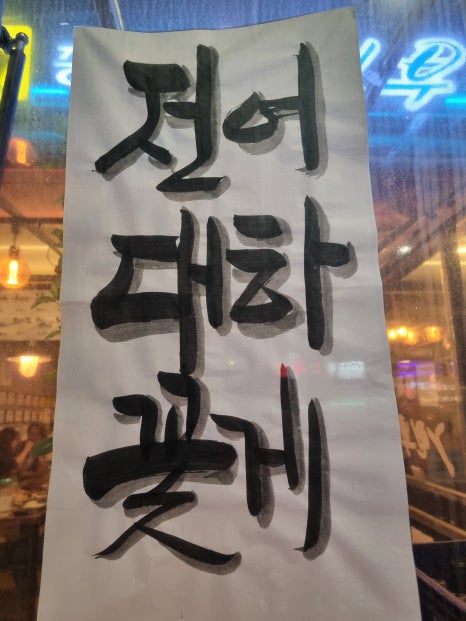 전어
대하
꽃게